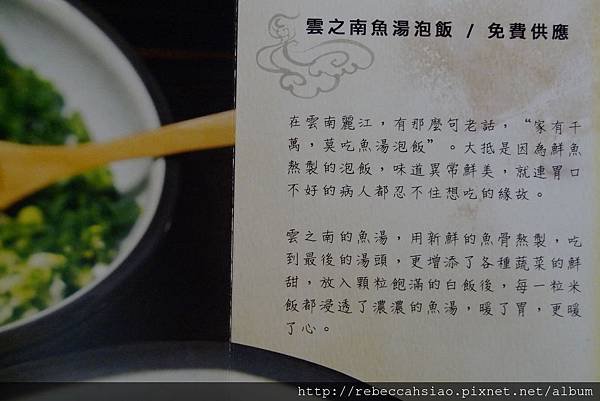 雲之南魚湯泡飯 / 免費供應
在雲南麗江，有那麼句老話，“家有千
萬，莫吃魚湯泡飯”。大抵是因為鮮魚
熬製的泡飯，味道異常鮮美，就連胃口
不好的病人都忍不住想吃的緣故。
雲之南的魚湯，用新鮮的魚骨熬製，吃
到最後的湯頭，更增添了各種蔬菜的鮮
甜，放入顆粒飽滿的白飯後，每一粒米
飯都浸透了濃濃的魚湯，暖了胃，更暖
了心。
http://rebeccahsiao.pixnet.net/album